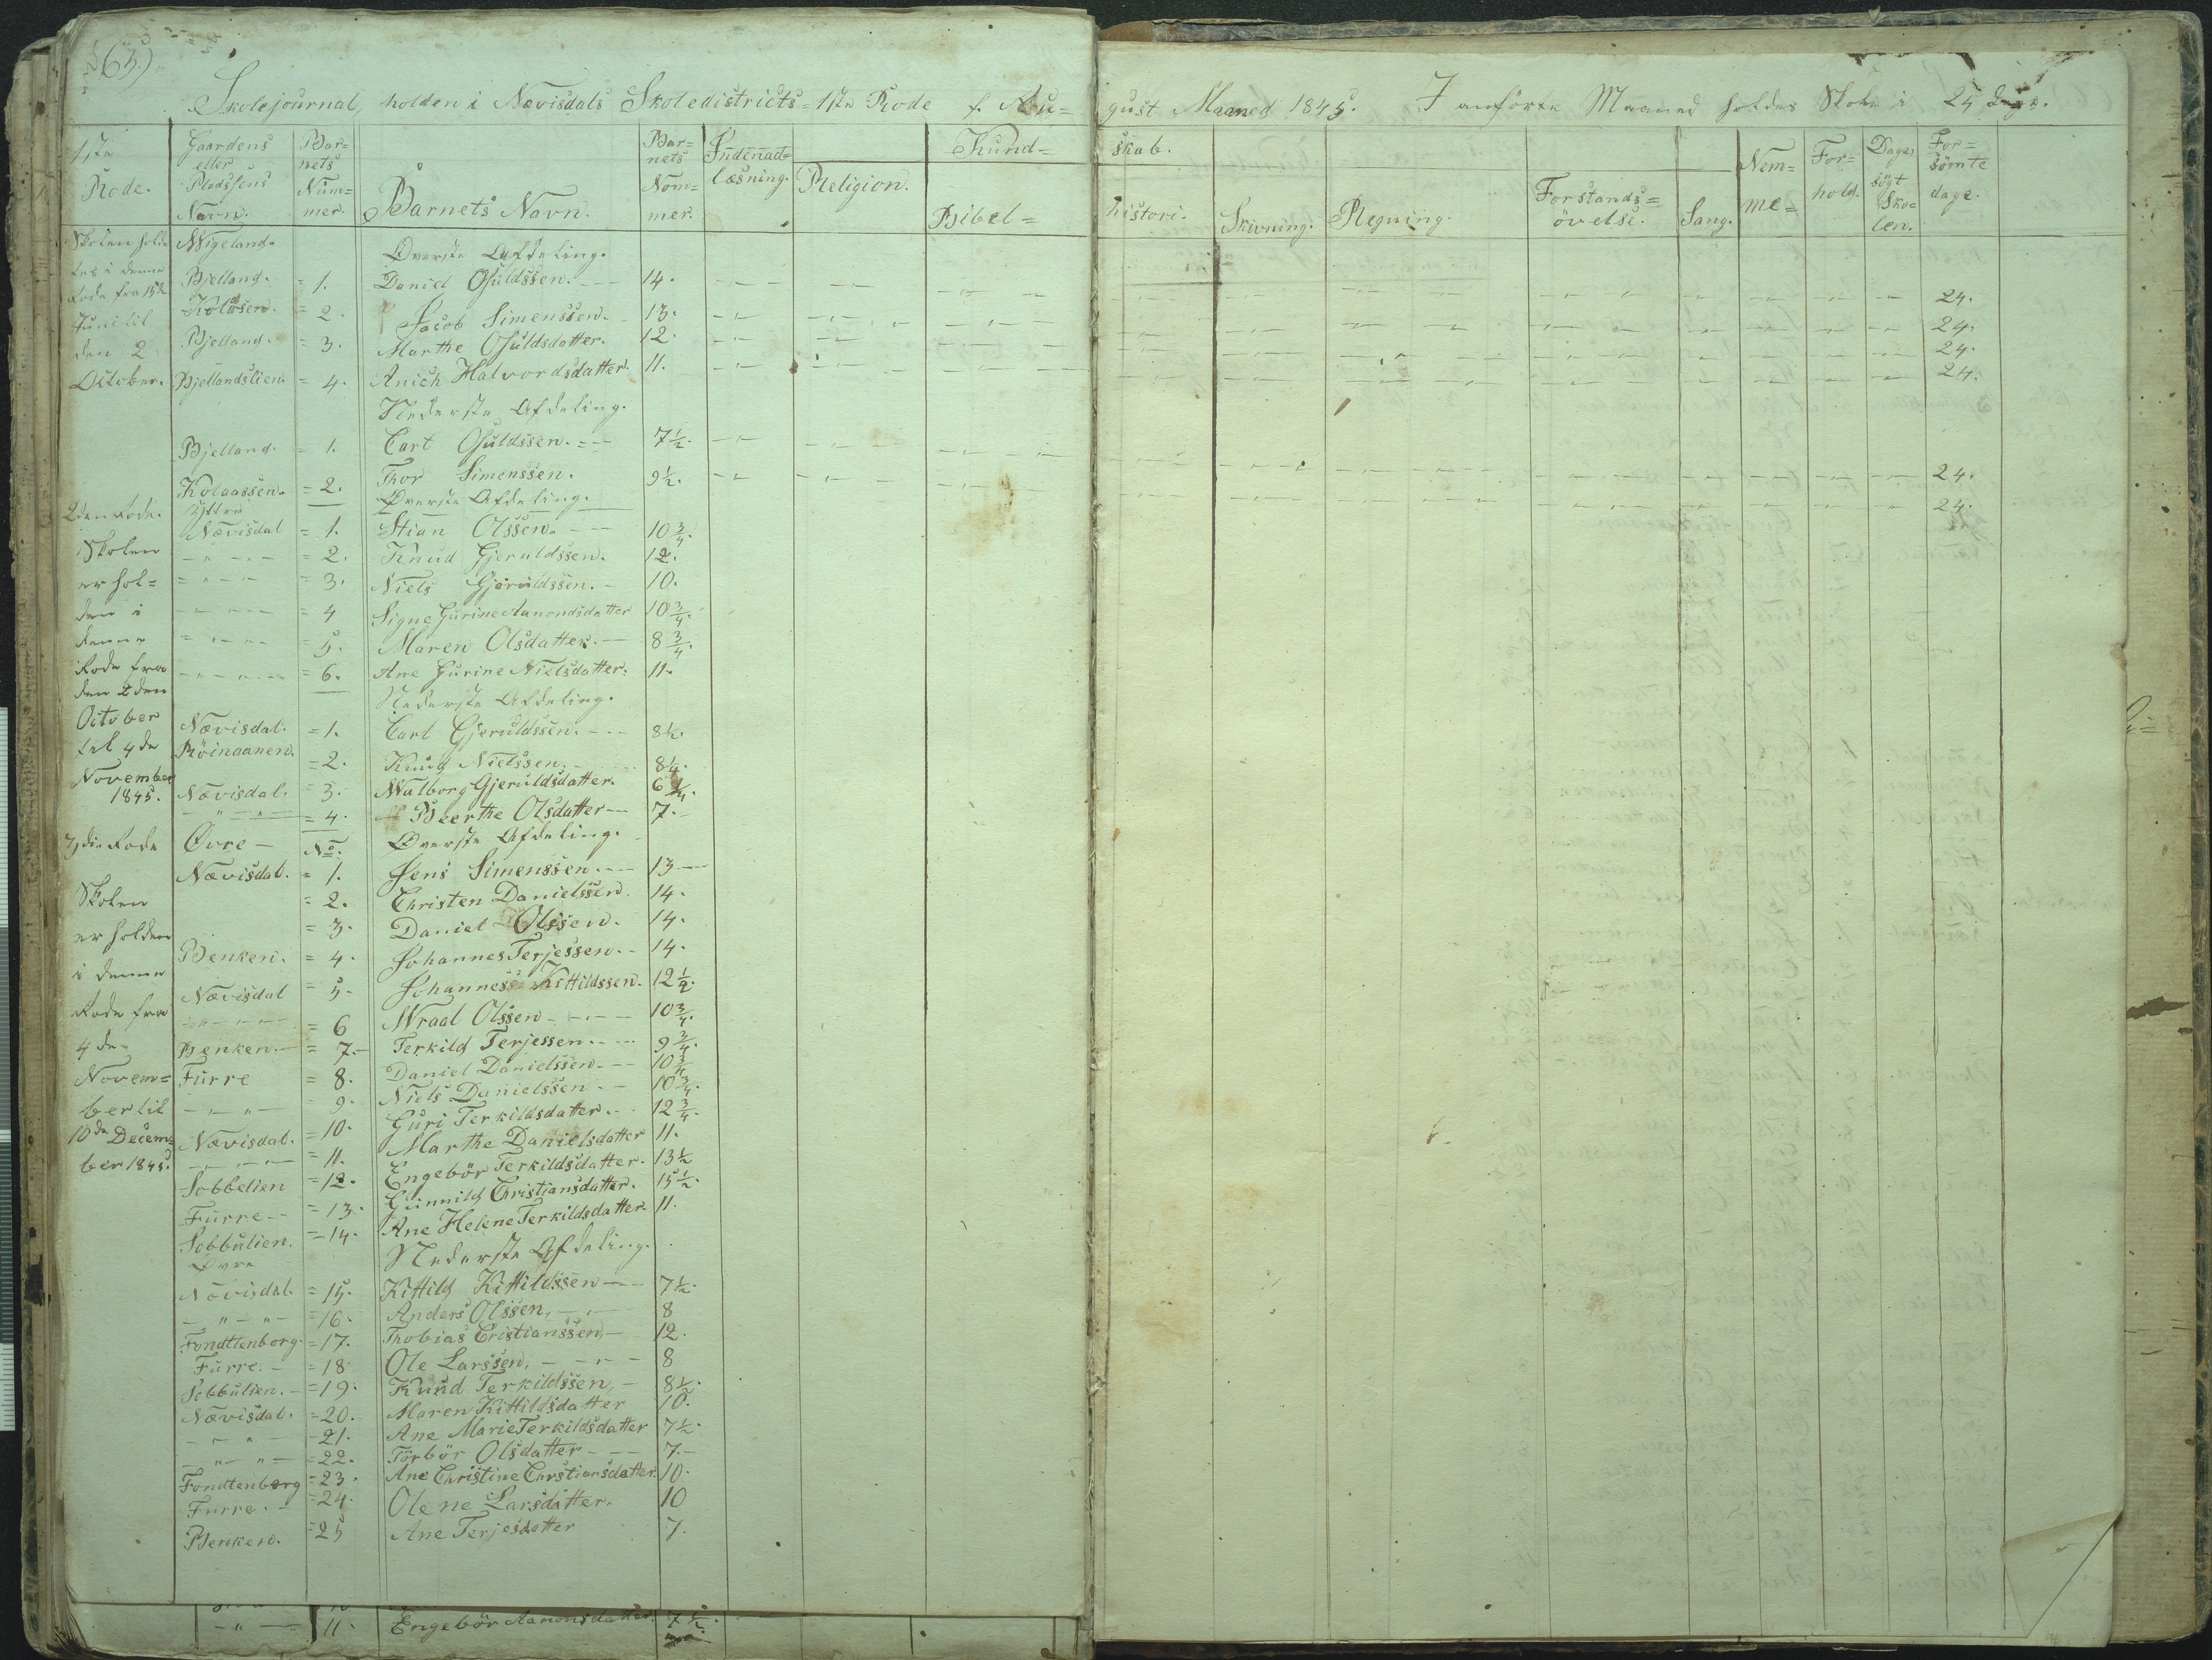 65.)
Skolejournal, holden i Nævisdals Skoledistricts 1ste Rode f. Au= gust Maaned 1845. I anförte Maaned holdes Skole i 24 dage.
1ste Rode. Gaardens eller Pladssens Navn. Bar= nets Num= mer. Barnets Navn. Bar= nets Nom= mer. Indenad= læsning. Religion. Kund= skab. Bibel= histori. Skrivning. Regning. Forstands= övelse. Sang. Nem= me= For= hold. Dage, sögt Sko= len. For= sömte dage.
Skolen holdtes i denne Rode fra 15de Juni til den 2 October.
Wigeland. Øverste Afdeling.
Bjelland. = 1. Daniel Osuldssen. 14. 24.
Kolåsen. = 2. Jacob Simenssen. 13. 24.
Bjelland. = 3. Marthe Osuldsdatter. 12. 24.
Bjellandslien. = 4. Anich Halvordsdatter. 11. 24.
Nederste Afdeling.
Bjelland. = 1. Carl Osuldssen. 7½. 24.
Kolaassen. = 2. Thor Simenssen. 9½. 24.
2den Rode. Yttre Øverste Afdeling.
Skolen er hol= den i denne Rode fra den 2den October til 4de November 1845.
Nævisdal = 1. Stian Olssen. 10¾.
- " - = 2. Knud Gjeruldssen. 12.
- " - = 3. Niels Gjeruldssen. 10.
- " - = 4 Signe Gurine Aanondsdatter 10¾.
- " - = 5. Maren Olsdatter. 8¾.
- " - = 6. Ane Gurine Nielsdatter. 11.
Nederste Afdeling.
Nævisdal. = 1. Carl Gjeruldssen. 8½.
Röinaanen. = 2. Knud Nielssen. 8¼.
Nævisdal. = 3. Walborg Gjeruldsdatter. 6¼.
- " - = 4. Beerthe Olsdatter 7.
3die Rode Øvre No. Øverste Afdeling.
Skolen er holden i denne Rode fra 4de Novem= ber til 10de Decem= ber 1845.
Nævisdal. = 1. Jens Simenssen. 13
= 2. Christen Danielssen. 14.
= 3. Daniel Olssen. 14.
Benken. = 4. Johannes Terjessen. 14.
Nævisdal = 5. Johannes Kittildssen. 12½.
- " - = 6 Wraal Olssen 10¾.
Benken. = 7. Terkild Terjessen. 9¾.
Furre = 8. Daniel Danielssen. 10¾
- " - 9. Niels Danielssen 10¾.
Nævisdal. = 10. Guri Terkildsdatter. 12¾.
- " - = 11. Marthe Danielsdatter 11.
Sobbelien = 12. Engebör Terkildsdatter. 13½
Furre = 13. Gunnild Christiansdatter. 15½.
Sobbulien. = 14. Ane Helene Terkildsdatter. 11.
Øvre Nederste Afdeling.
Nævisdal. = 15. Kittild Kittildssen 7½.
- " - " - = 16. Anders Olssen, 8
Fondtenborg. = 17. Thobias Cristianssen, 12.
Furre. = 18. Ole Larssen, 8
Sobbulien. = 19. Knud Terkildssen, 8½.
Nævisdal. = 20. Maren Kittildsdatter 10.
- " - = 21. Ane Marie Terkildsdatter 7½
- " - " - = 22. Törbör Olsdatter 7.
Fondtenborg = 23. Ane Christine Chrstiansdatter. 10.
Furre. = 24. Olene Larsdatter. 10
Benken. = 25 Ane Terjesdatter 7.
- " - 11. Engebör Aanonsdatter. 7½.